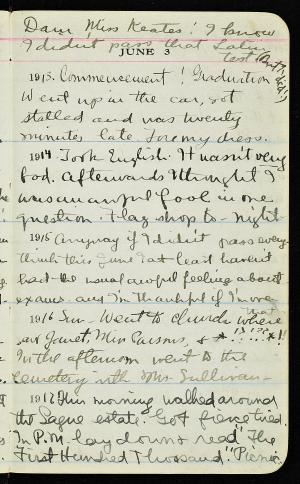 Darn Miss Keates! I know
I didn't pass that Latin
test (But I did!)
JUNE 3
1913. Commencement! Graduation
Went up in the car, got
stalled and was twenty
minutes late for my dress.
1914 Took English. It wasn't very
bad. Afterwards I thought I
was an awful fool in one
question. Flag shop to-night
1915 Anyway if I didn't pass every-
think this June I at least haven't
had the usual awful feeling about
exams. and I'm thankful if I never
1916 Sun- Went to church where
saw Janet, Miss Parsons, & * !!??*!!
In the afternoon went to the
Cemetery with Mrs Sullivan-
1917 This morning walked around
the Sague estate. Got fierce tired.
In P.M. lay down & read "The
First Hundred Thousand." Picnic.